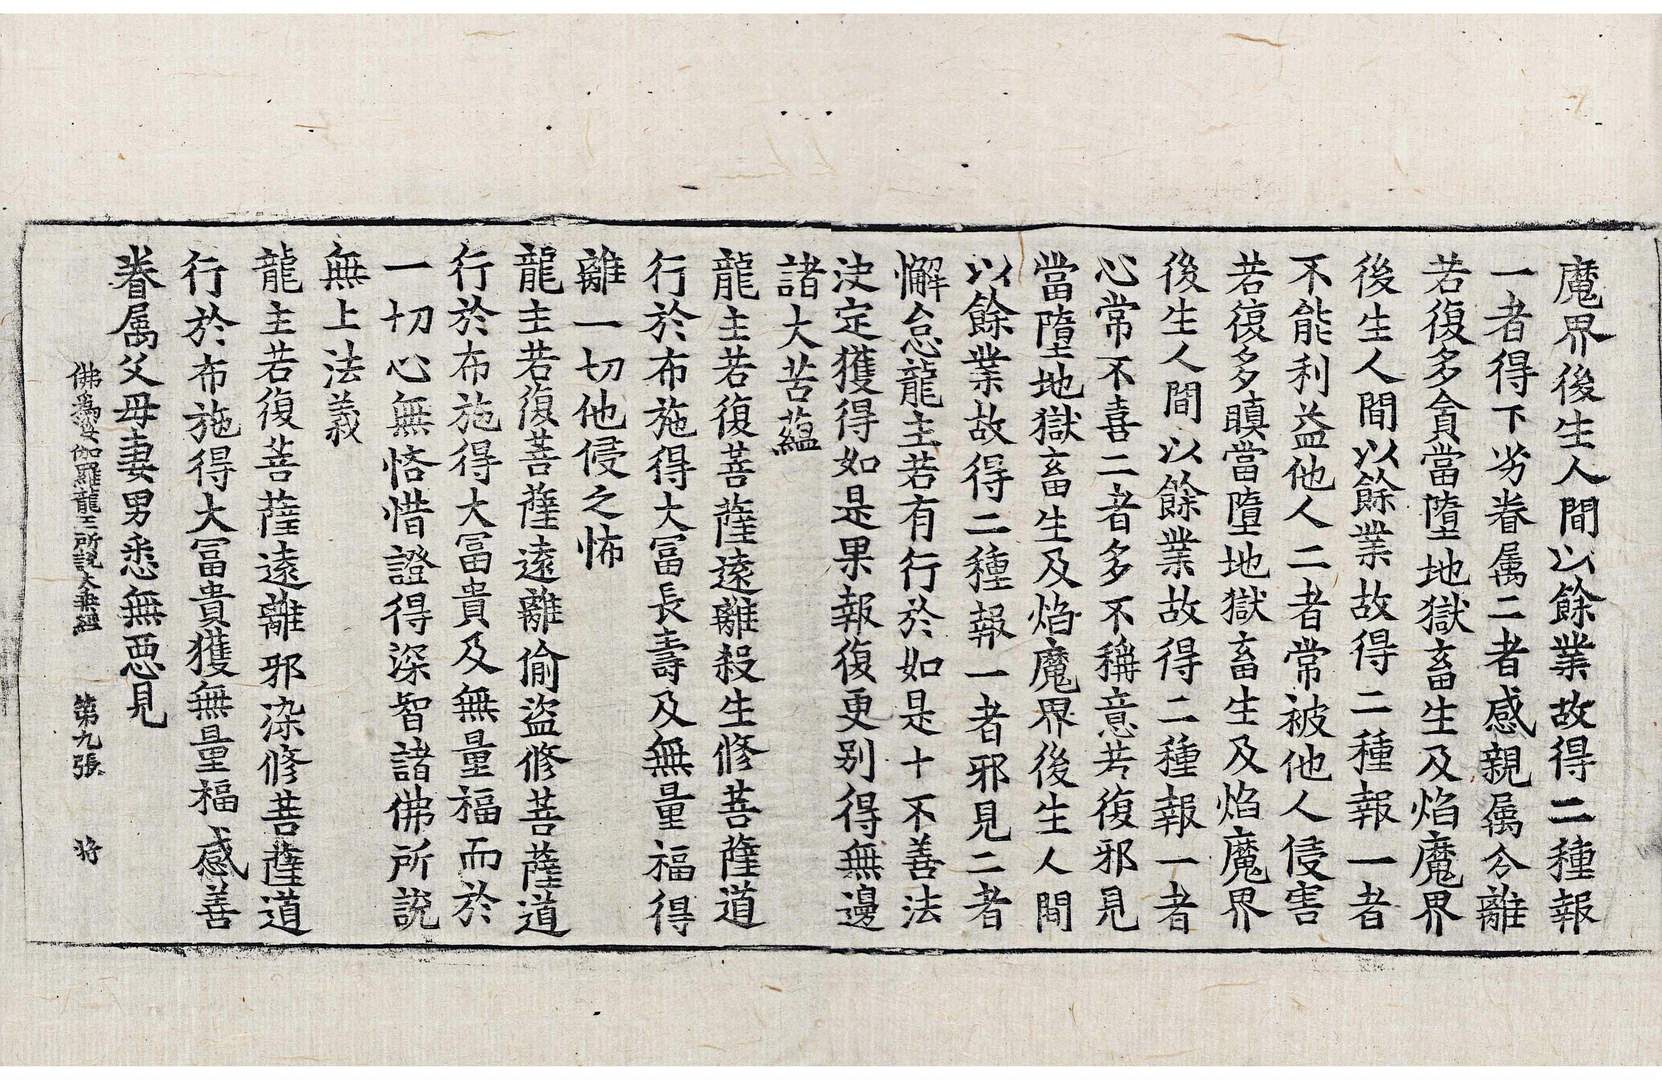 魔界後生人間以餘業故得二種報
一者得下劣眷属二者感親属分離
若復多貪當墮地獄畜生及焰魔界
後生人間以餘業故得二種報一者
不能利益他人二者常被他人侵害
若復多瞋當墮地獄畜生及焰魔界
後生人間以餘業故得二種報一者
心常不喜二者多不稱意若復邪見
當墮地獄畜生及焰魔界後生人間
以餘業故得二種報一者邪見二者
懈怠龍主若有行於如是十不善法
決定獲得如是果報復更别得無邊
諸大苦蘊
龍主若復菩薩遠離殺生修菩薩道
行於布施得大冨長壽及無量福得
離一切他侵之怖
龍主若復菩薩遠離偷盜修菩薩道
行於布施得大冨貴及無量福而於
一切心無悋惜證得深智諸佛所說
無上法義
龍主若復菩薩遠離邪染修菩薩道
行於布施得大冨貴獲無量福感善
眷属父母妻男悉無惡見
佛爲娑伽羅龍王所說大乘經 第九張 将